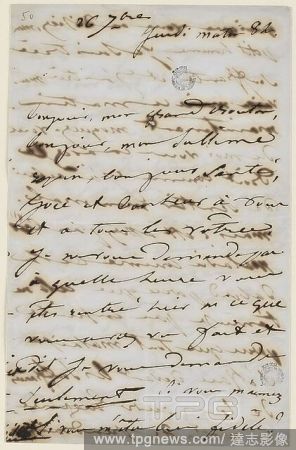 50
26 7bre
Jeudi matin 8h
Bonjour, mon grand Toto,
bonjour, mon sublime
bonjour santé,
force et bonheur à vous
et à tous les vôtres
Je ne vous demande pas
à quelle heure vous
êtes rentré hier ni ce que
vous avez fait et
dit Je vous demande
seulement si vous m'aimez
si vous m'êtes fidèle
TPG
www.tpgnews.com / 達志影像